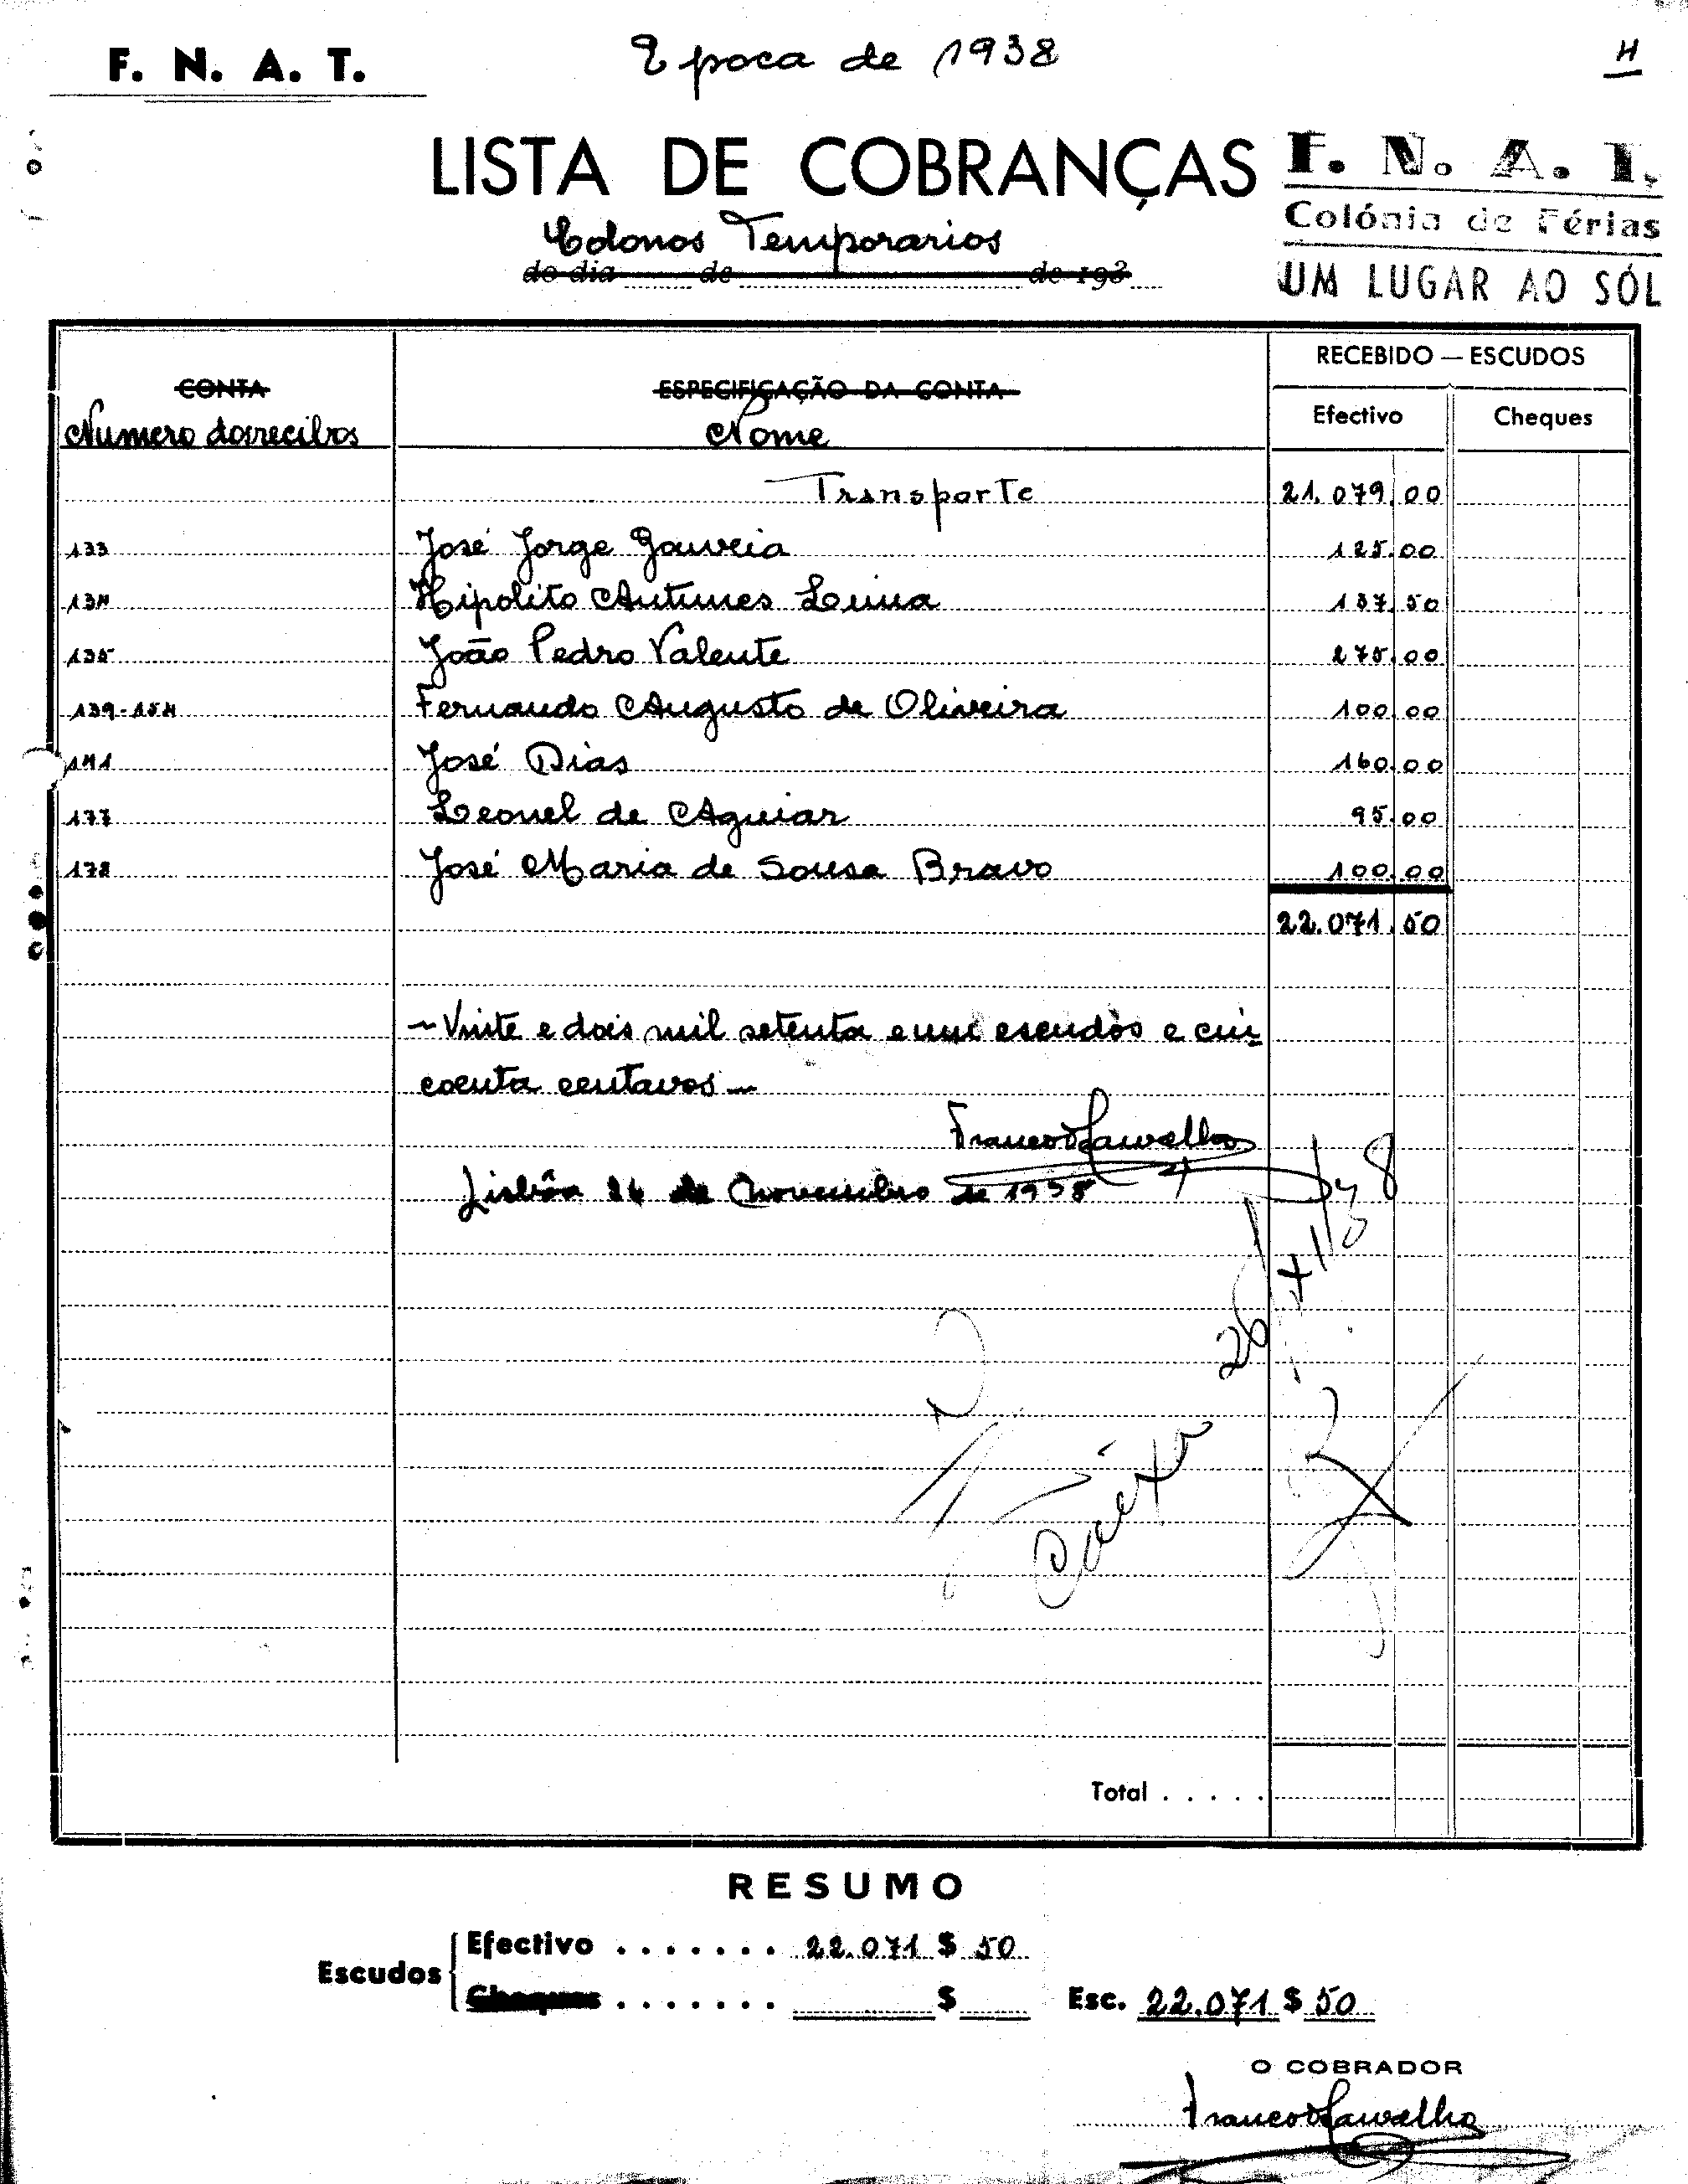 F. N. A. T.
Epoca de 1938
4
LISTA DE COBRANÇAS
F. N. A. T.
Colónia de Férias
UM LUGAR AO SÓL
Colonos Temporarios
do dia de de 193
CONTA
Numero dos recibos
ESPECIFICAÇÃO DA CONTA
Nome
RECEBIDO — ESCUDOS
Efectivo Cheques
Transporte 21.079.00
133 José Jorge Gouveia 125.00
134 Hipolito Antunes Luna 137.50
135 João Pedro Valente 275.00
139-154 Fernando Augusto de Oliveira 100.00
141 José Dias 160.00
177 Leonel de Aguiar 95.00
178 José Maria de Sousa Bravo 100.00
22.071.50
~ Vinte e dois mil setenta e um escudos e cin-
coenta centavos ~
Lisbôa 24 de Novembro de 1938
26/XI/38
Caixa
Total . . . . .
RESUMO
Escudos
Efectivo . . . . . . . 22.071 $ 50
Cheques . . . . . . . $
Esc. 22.071 $ 50
O COBRADOR